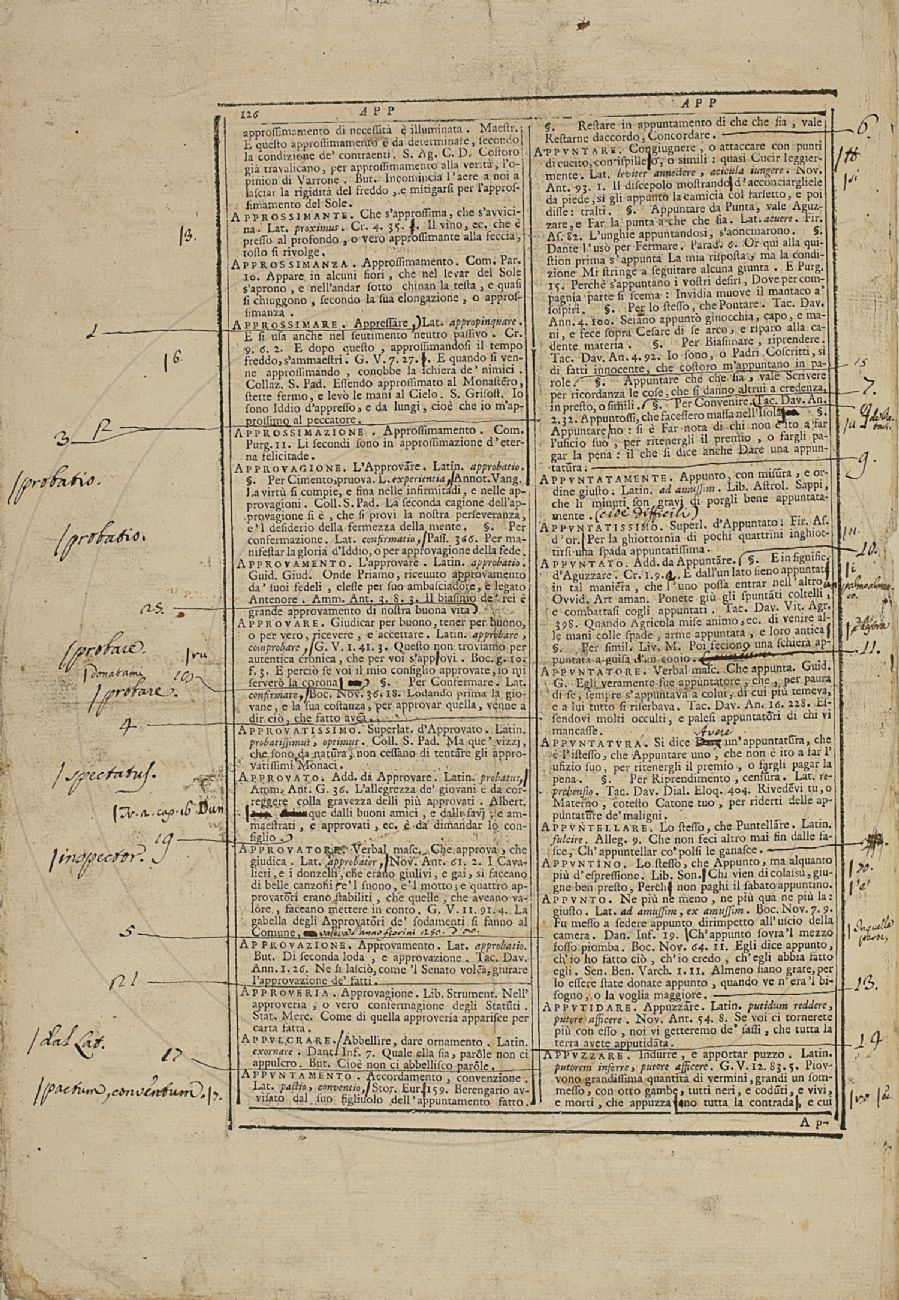 126
APP
APP
approssimamento di necessità è illuminata. Maestr.
E questo approssimamento è da determinate, secondo
la condizione de' contraenti. S. Ag. C. D. Costoro
già travalicano, per approssimamento alla verità, l'o-
pinion di Varrone. But. Incomincia l'aere a noi a
lasciar la rigidità del freddo, e mitigarsi per l'appros-
simamento del Sole.
APPROSSIMANTE. Che s'approssima, che s'avvici-
na. Lat. proximus. Cr. 4. 35. Il vino, ec. che è
presso al profondo, o vero approssimante alla feccia,
tosto si rivolge.
APPROSSIMANZA. Approssimamento. Com. Par.
10. Appare in alcuni fiori, che nel levar del Sole
s'aprono, e nell'andar sotto chinan la testa, e quasi
si chiuggono, secondo la sua elongazione, o appros-
simanza.
APPROSSIMARE. Appressare, Lat. appropinquare.
E si usa anche nel sentimento neutro passivo. Cr.
9. 6. 2. E dopo questo, approssimandosi il tempo
freddo, s'ammaestri. G. V. 7. 27. E quando si ven-
ne approssimando, conobbe la schiera de' nimici.
Collaz. S. Pad. Essendo approssimato al Monastéro,
stette fermo, e levò le mani al Cielo. S. Grisost. Io
sono Iddio d'appresso, e da lungi, cioè che io m'ap-
prossimo al peccatore.
APPROSSIMAZIONE. Approssimamento. Com.
Purg. 11. Li secondi sono in approssimazione d'eter-
na felicitade.
APPROVAGIONE. L'Approvàre. Latin. approbatio.
§. Per Cimento, pruova. L. experientia, Annot. Vang.
La virtù si compie, e fina nelle infirmitadi, e nelle ap-
provagioni. Coll. S. Pad. La seconda cagione dell'ap-
provagione si è, che si provi la nostra perseveranza,
e'l desiderio della fermezza della mente. §. Per
confermazione. Lat. confirmatio, Pass. 366. Per ma-
nifestar la gloria d'Iddio, o per approvagione della fede.
APPROVAMENTO. L'approvare. Latin. approbatio.
Guid. Giud. Onde Priamo, ricevuto approvamento
da' suoi fedeli, elesse per suo ambasciadore, e legato
Antenore. Amm. Ant. 3. 8. 3. Il biasimo de' rei è
grande approvamento di nostra buona vita
APPROVARE. Giudicar per buono, tener per buono,
o per vero, ricevere, e accettare. Latin. approbare,
comprobare, G. V. 1. 41. 3. Questo non troviamo per
autentica cronica, che per voi s'appovi. Boc. g. 10.
f. 3. E perciò se voi il mio consiglio approvate, io mi
serverò la corona §. Per Confermare. Lat.
confirmare, Boc. Nov. 36. 18. Lodando prima la gio-
vane, e la sua costanza, per approvar quella, venne a
dir ciò, che fatto avea.
APPROVATISSIMO. Superlat. d'Approvato. Latin.
probatissimus, optimus. Coll. S. Pad. Ma que' vizzj,
che sono da natura, non cessano di tentare gli appro-
vatissimi Monaci.
APPROVATO. Add. da Approvare. Latin. probatus,
Amm. Ant. G. 36. L'allegrezza de' giovani è da cor-
reggere colla gravezza delli più approvati. Albert.
que dalli buoni amici, e dalli savj, e am-
maestrati, e approvati, ec. è da dimandar lo con-
figlio.
APPROVATORE. Verbal masc. Che approva, che
giudica. Lat. approbator, Nov. Ant. 61. 2. I Cava-
lieri, e i donzelli, che erano giulivi, e gai, si faceano
di belle canzoni, e'l suono, e'l motto; e quattro ap-
provatóri erano stabiliti, che quelle, che aveano va-
lóre, faceano mettere in conto. G. V. 11. 91. 4. La
gabella degli Approvatóri de' sodamenti si fanno al
Comune, valeva l'anno fiorini 250. d'oro.
APPROVAZIONE. Approvamento. Lat. approbatio.
But. Di seconda loda, e approvazione. Tac. Dav.
Ann. 1. 26. Ne si lasciò, come 'l Senato voléa, giurare
l'approvazione de' fatti.
APPROVERIA. Approvagione. Lib. Strument. Nell'
approveria, o vero confermagione degli Statúti.
Stat. Merc. Come di quella approveria apparisce per
carta fatta.
APPULCRARE. Abbellire, dare ornamento. Latin.
exornare. Dant. Inf. 7. Quale ella sia, paróle non ci
appulcro. But. Cioè non ci abbellisco paróle.
APPUNTAMENTO. Accordamento, convenzione.
Lat. pactio, conventio, Stor. Eur. 159. Berengario av-
visato dal suo figliuolo dell'appuntamento fatto.
§. Restare in appuntamento di che che sia, vale
Restarne daccordo, Concordare.
APPVNTARE. Congiugnere, o attaccare con punti
di cucito, con ispille o, o simili: quasi Cucir leggier-
mente. Lat. leviter annectere, acicula iungere. Nov.
Ant. 93. 1. Il discepolo mostrando d'acconciargliele
da piede, si gli appuntò la camicia col farsetto, e poi
disse: tralti. §. Appuntare da Punta, vale Aguz-
zare, e Far la punta a che che sia. Lat. acuere. Fir.
As. 82. L'unghie appuntandosi, s'aoncinarono. §.
Dante l'usò per Fermare. Parad. 6. Or qui alla qui-
stion prima s'appunta La mia risposta, ma la condi-
zione Mi stringe a seguitare alcuna giunta. E Purg.
15. Perchè s'appuntano i vostri desiri, Dove per com-
pagnia parte si scema: Invidia muove il mantaco a'
sospiri. §. Per lo stesso, che Pontare. Tac. Dav.
Ann. 4. 100. Seiano appuntò ginocchia, capo, e ma-
ni, e fece sopra Cesare di se arco, e riparo alla ca-
dente materia. §. Per Biasimare, riprendere.
Tac. Dav. An. 4. 92. Io sono, o Padri Coscritti, sì
di fatti innocente, che costoro m'appuntano in pa-
role. §. Appuntare che che sia, vale Scrivere
per ricordanza le cose, che si danno altrui a credenza,
in presto, o simili. §. Per Convenire. Tac. Dav. An.
2. 32. Appuntossi, che facessero massa nell'Isola §.
Appuntare uno: si è Far nota di chi non è ito a far
l'uficio suo, per ritenergli il premio, o fargli pa-
gar la pena: il che si dice anche Dare una appun-
tatúra.
APPVNTATAMENTE. Appunto, con misúra, e or-
dine giusto. Latin. ad amussim. Lib. Astrol. Sappi,
che li minuti son gravi di porgli bene appuntata-
mente. (cioè difficili)
APPVNTATISSIMO. Superl. d'Appuntato: Fir. As.
d'or. Per la ghiottornia di pochi quattrini inghiot-
tirsi una spada appuntatissima.
APPVNTATO. Add. da Appuntáre. §. E in signific.
d'Aguzzare. Cr. 1. 9. 4. E dall'un lato sieno appuntati
in tal maniéra, che l'uno possa entrar nell'altro
Ovvid. Art aman. Ponete giù gli spuntáti coltelli,
e combattasi cogli appuntati. Tac. Dav. Vit. Agr.
398. Quando Agricola mise animo, ec. di venire al-
le mani colle spade, arme appuntata, e loro antica
§. Per simil. Liv. M. Poi feciono una schiera ap-
puntata a guisa d'un conio.
APPVNTATORE. Verbal masc. Che appunta. Guid.
G. Egli veramente fue appuntatore, che, per paura
di se, sempre s'appuntava a colui, di cui più temeva,
e a lui tutto si riserbava. Tac. Dav. An. 16. 228. Es-
sendovi molti occulti, e palesi appuntatóri di chi vi
mancasse.
Avere
APPVNTATVRA. Si dice un'appuntatúra, che
è l'istesso, che Appuntare uno, che non è ito a far l'
ufizio suo, per ritenergli il premio, o fargli pagar la
pena. §. Per Riprendimento, censúra. Lat. re-
prehensio. Tac. Dav. Dial. Eloq. 404. Rivedévi tu, o
Materno, cotesto Catone tuo, per riderti delle ap-
puntatúre de' maligni.
APPVNTELLARE. Lo stesso, che Puntellare. Latin.
fulcire. Alleg. 9. Che non feci altro mai fin dalle fa-
sce, Ch'appuntellar co' polsi le ganasce.
APPVNTINO. Lo stesso, che Appunto, ma alquanto
più d'espressione. Lib. Son. Chi vien di colassù, giu-
gne ben presto, Perch non paghi il sabato appuntino.
APPVNTO. Ne più ne meno, ne più qua ne più la:
giusto. Lat. ad amussim, ex amussim. Boc. Nov. 7. 9.
Fu messo a sedere appunto dirimpetto all'uscio della
camera. Dan. Inf. 19. Ch'appunto sovra 'l mezzo
fosso piomba. Boc. Nov. 64. 11. Egli dice appunto,
ch'io ho fatto ciò, ch'io credo, ch'egli abbia fatto
egli. Sen. Ben. Varch. 1. 11. Almeno siano grate, per
lo essere state donate appunto, quando ve n'era'l bi-
sogno, o la voglia maggiore.
APPVTIDARE. Appuzzáre. Latin. putidum reddere,
putore afficere. Nov. Ant. 54. 8. Se voi ci tornerete
più con esso, noi vi getteremo de' sassi, che tutta la
terra avete apputidáta.
APPVZZARE. Indurre, e apportar puzzo. Latin.
putorem inferre, putore afficere. G. V. 12. 83. 5. Piov-
vono grandissima quantità di vermini, grandi un som-
messo, con otto gambe, tutti neri, e codúti, e vivi,
e morti, che appuzzano tutta la contrada, e cui
Ap-
probatio.
probatio.
23.
probare
donatam
ru
20
probare.
4
spectatus.
19
inspector.
5
21
dal Lat.
17
pactum, conventum.
3
12
6.
7.
9.
10.
11.
13.
14